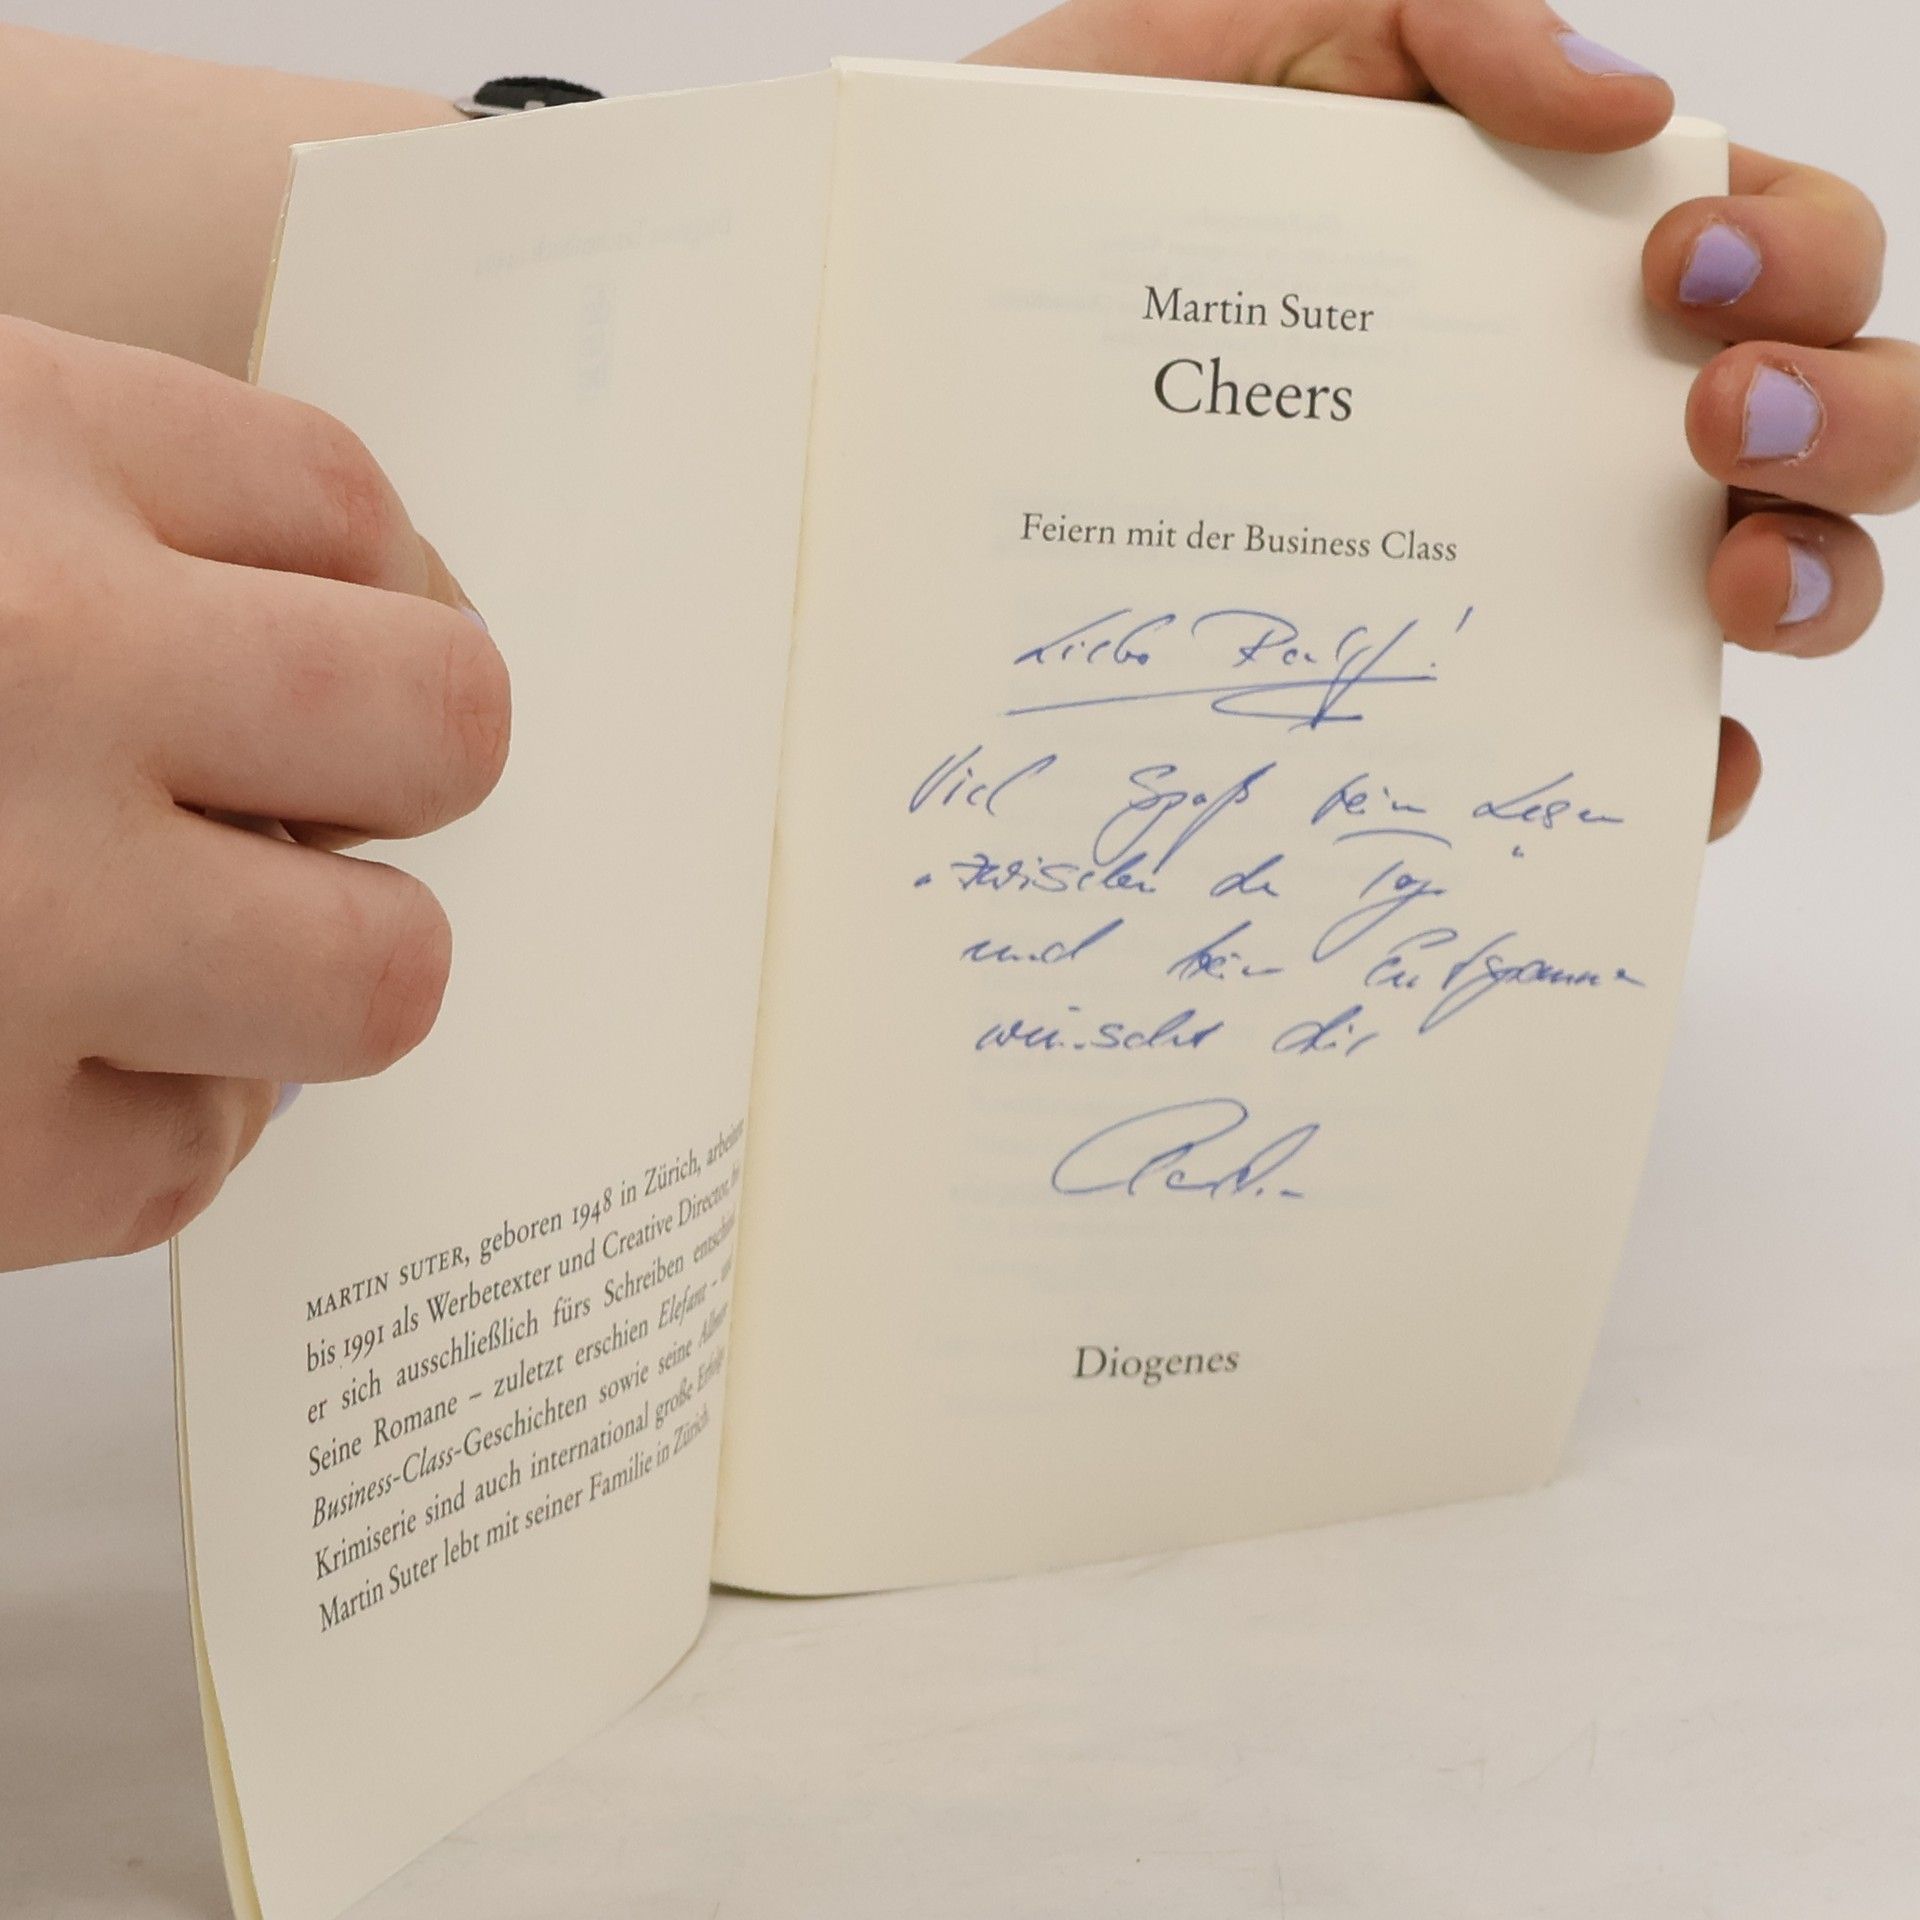 MARTIN SUTER, geboren 1948 in Zürich, arbeitete
bis 1991 als Werbetexter und Creative Director, bis
er sich ausschließlich fürs Schreiben entschied.
Seine Romane – zuletzt erschien Elefant – und
Business-Class-Geschichten sowie seine Allmen-
Krimiserie sind auch international große Erfolge.
Martin Suter lebt mit seiner Familie in Zürich.
Martin Suter
Cheers
Feiern mit der Business Class
Lieber Ralf!
Viel Spaß beim Lesen
"zwischen den Tagen"
und beim Entspannen
wünscht dir
Diogenes